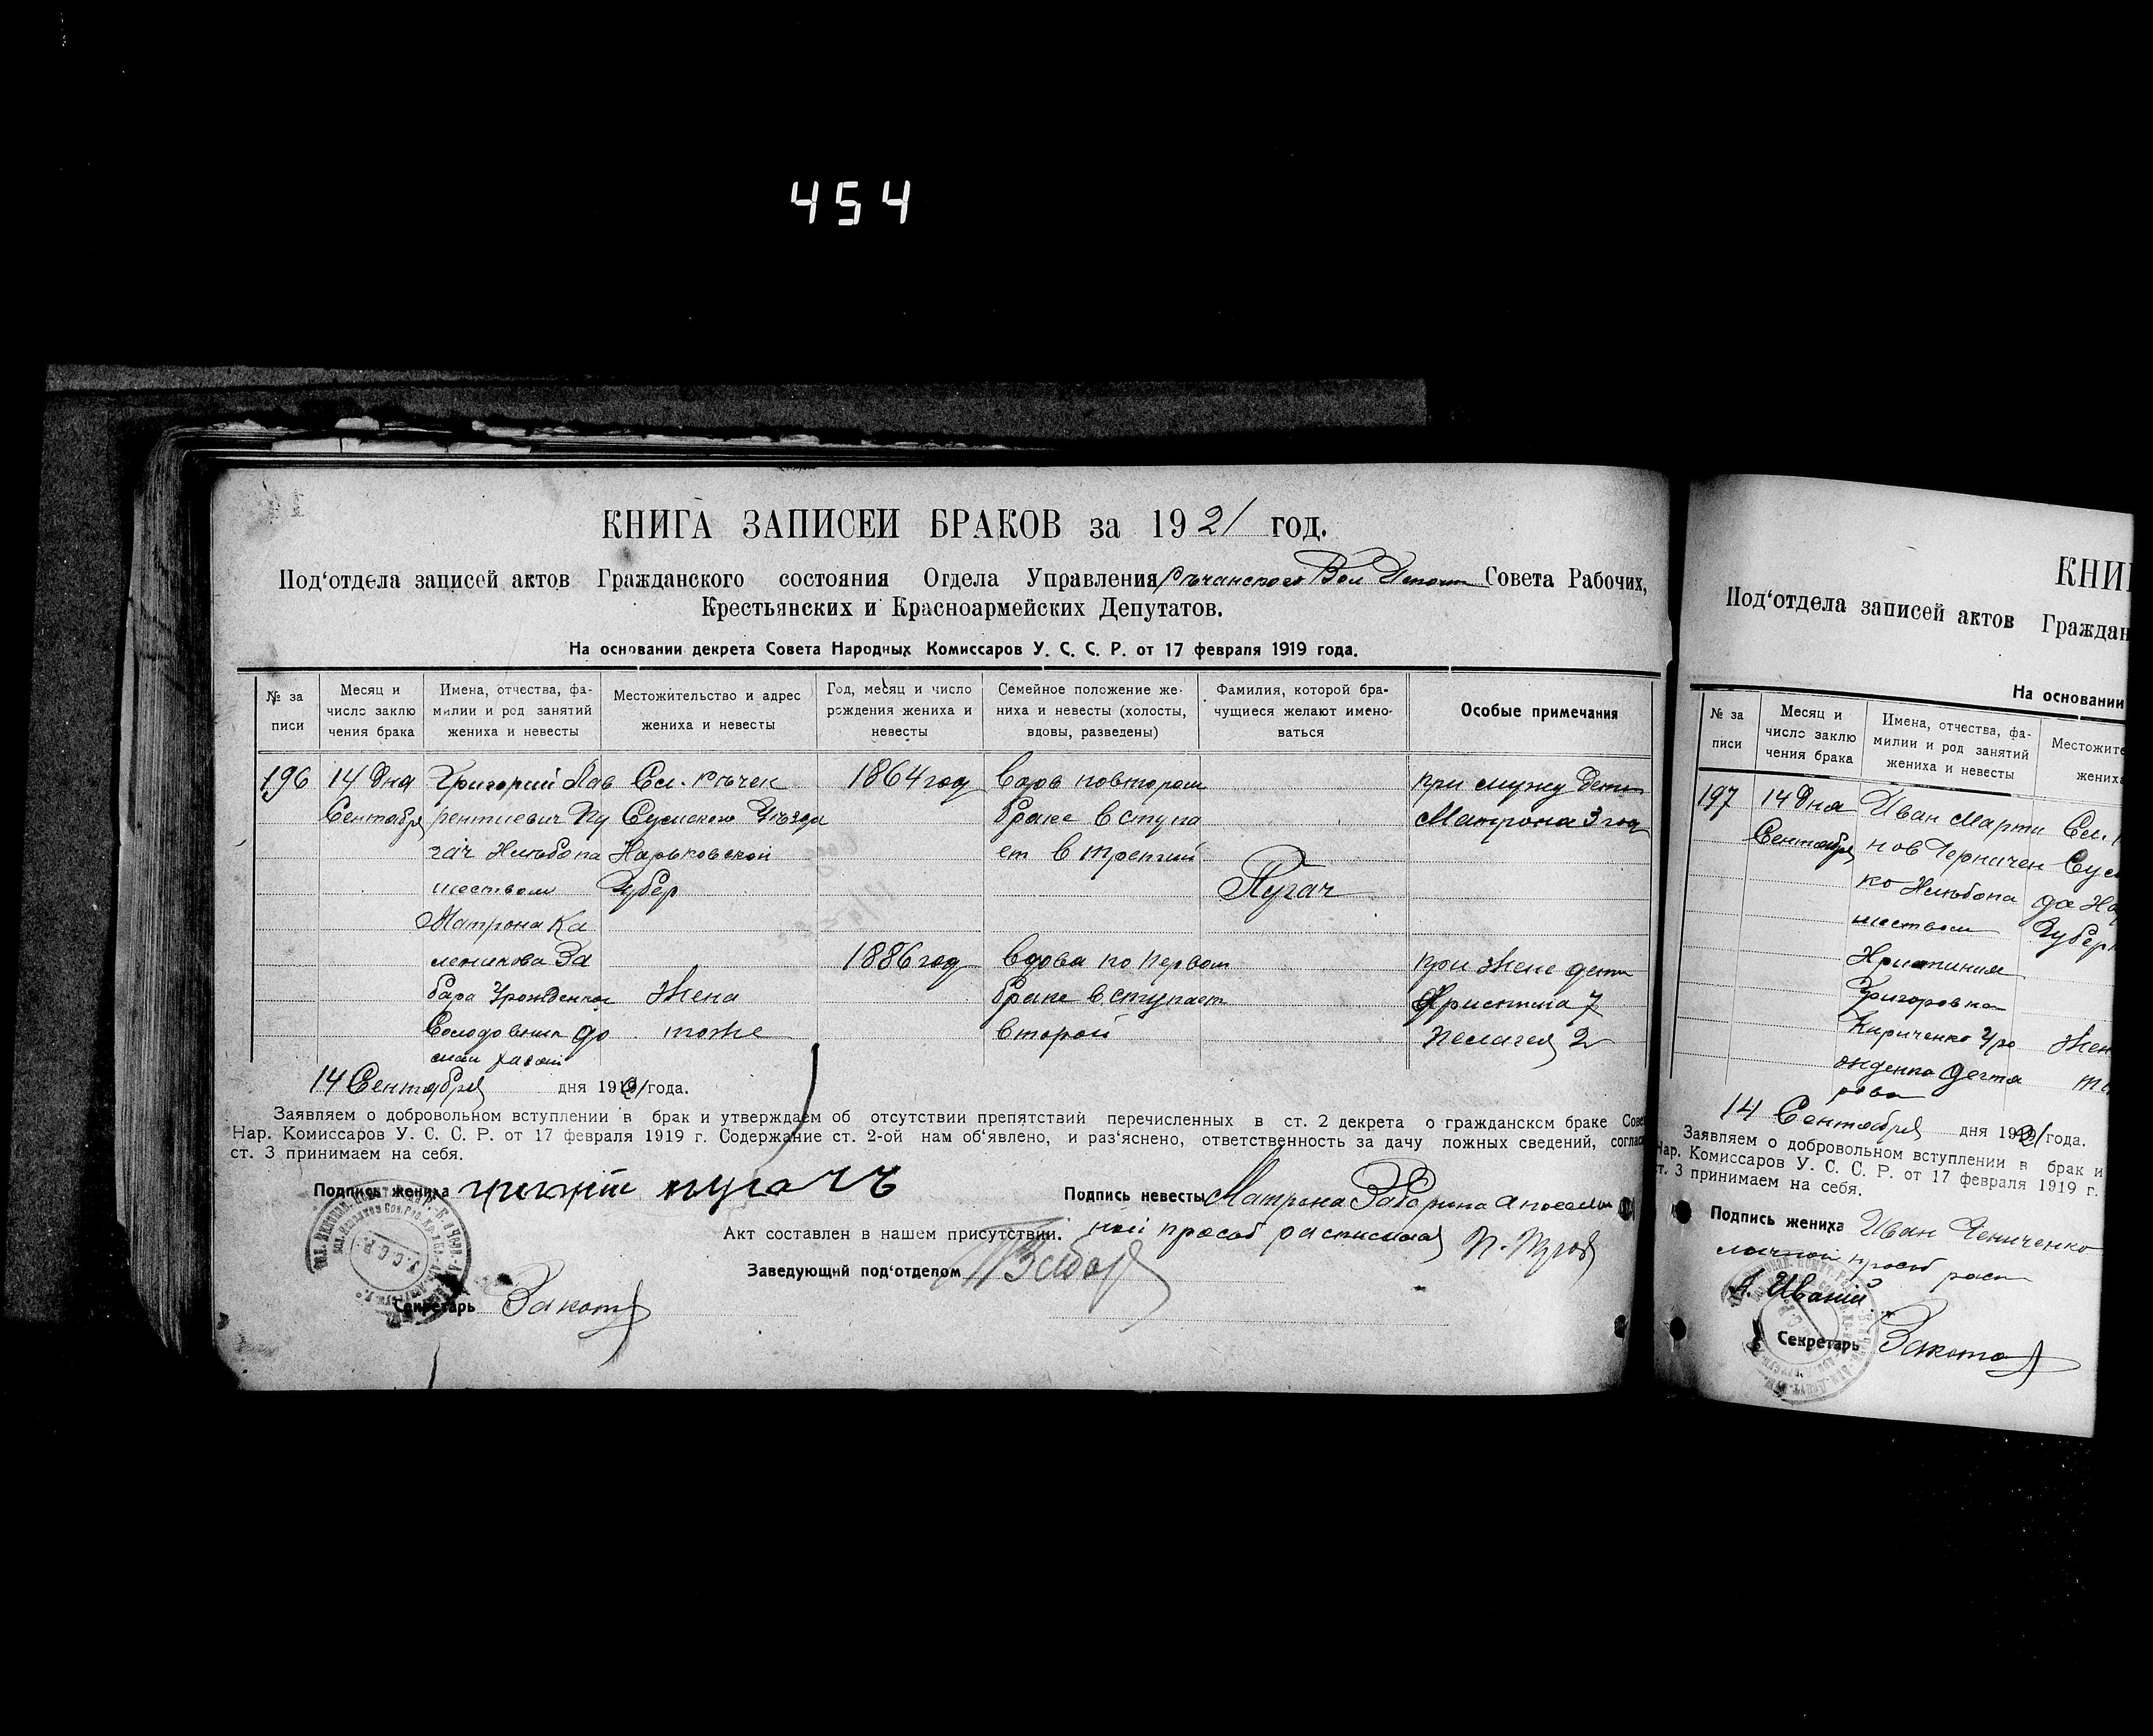 454
КНИГА ЗАПИСЕЙ БРАКОВ за 1921 год.
Под‘отдела записей актов Гражданского состояния Отдела Управления Речанского Вол Совета Рабочих,
Крестьянских и Красноармейских Депутатов.
На основании декрета Совета Народных Комиссаров У. С. С. Р. от 17 февраля 1919 года.
№ за
писи
Месяц и
число заклю
чения брака
Имена, отчества, фа-
милии и род занятий
жениха и невесты
Местожительство и адрес
жениха и невесты
Год, месяц и число
рождения жениха и
невесты
Семейное положение же-
ниха и невесты (холосты,
вдовы, разведены)
Фамилия, которой бра-
чущиеся желают имено-
ваться
Особые примечания
196
14 Дня
Сентября
Григорий Лав
рентиевич Пу
гач Хлѣбопа
шеством
Матрона Ка
За
бара Урожденная
Солодовник до
Сел. Рѣчек
Сумского Уѣзда
Харьковской
Губер
Жена
тоже
1864 год
1886 год
вдов повтором
браке вступа
ет в третий
вдова по первом
браке вступает
второй
Пугач
при мужу дети
Матрона 3 год
при жене дети
Христина 7
Пелагея 2
14 Сентября дня 1921 года.
Заявляем о добровольном вступлении в брак и утверждаем об отсутствии препятствий перечисленных в ст. 2 декрета о гражданском браке Сове
Нар. Комиссаров У. С. С. Р. от 17 февраля 1919 г. Содержание ст. 2-ой нам об‘явлено, и раз‘яснено, ответственность за дачу ложных сведений, соглас
ст. 3 принимаем на себя.
Подпись жениха пугачъ
Подпись невесты Матрона
Акт составлен в нашем присутствии.
Заведующий под‘отделом
Секретарь
КНИ
Под‘отдела записей актов Граждан
На основании
№ за
писи
Месяц и
число заклю
чения брака
Имена, отчества, фа-
милии и род занятий
жениха и невесты
Местожите
жениха
197
14 Дня
Сентября
Иван Марти
нов Черничен
ко Хлѣбопа
шеством
Христиния
Григоровна
Кириченко Уро
жденна Дегтя
рова
Сел.
Сум
да Ха
Губер
Жен
то
14 Сентября дня 1921 года.
Заявляем о добровольном вступлении в брак и
Нар. Комиссаров У. С. С. Р. от 17 февраля 1919 г.
ст. 3 принимаем на себя.
Подпись жениха Иван
Секретарь